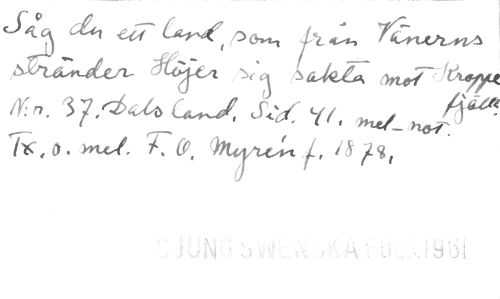 Såg du ett land, som från Vänerns
stränder Höjer sig sakta mot Kroppe
fjäll.
N:r. 37. Dalsland. Sid. 41. mel-not.
Tx. o. mel. F. O. Myrén f. 1878.
SJUNG SWENSKA FOLK 1961